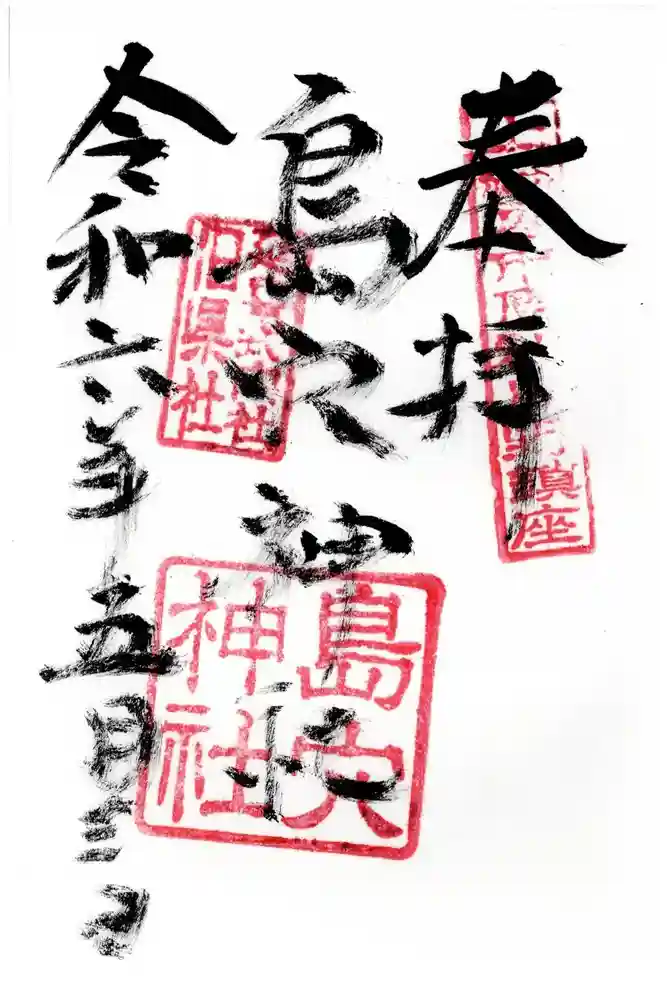 奉拝
島穴神社
令和六年五月三日
鎮座
延喜式内社
旧県社
島穴
神社